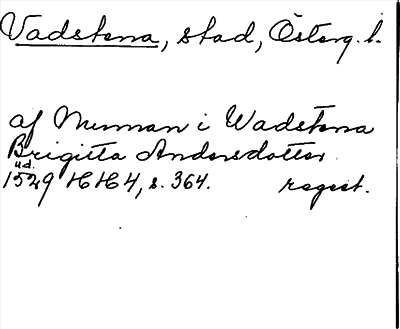 Vadstena, stad, Österg. l.
af Nunnan i Wadstena
Brigitta Andersdotter
u.d.
1529 HH4, s. 364. regest.